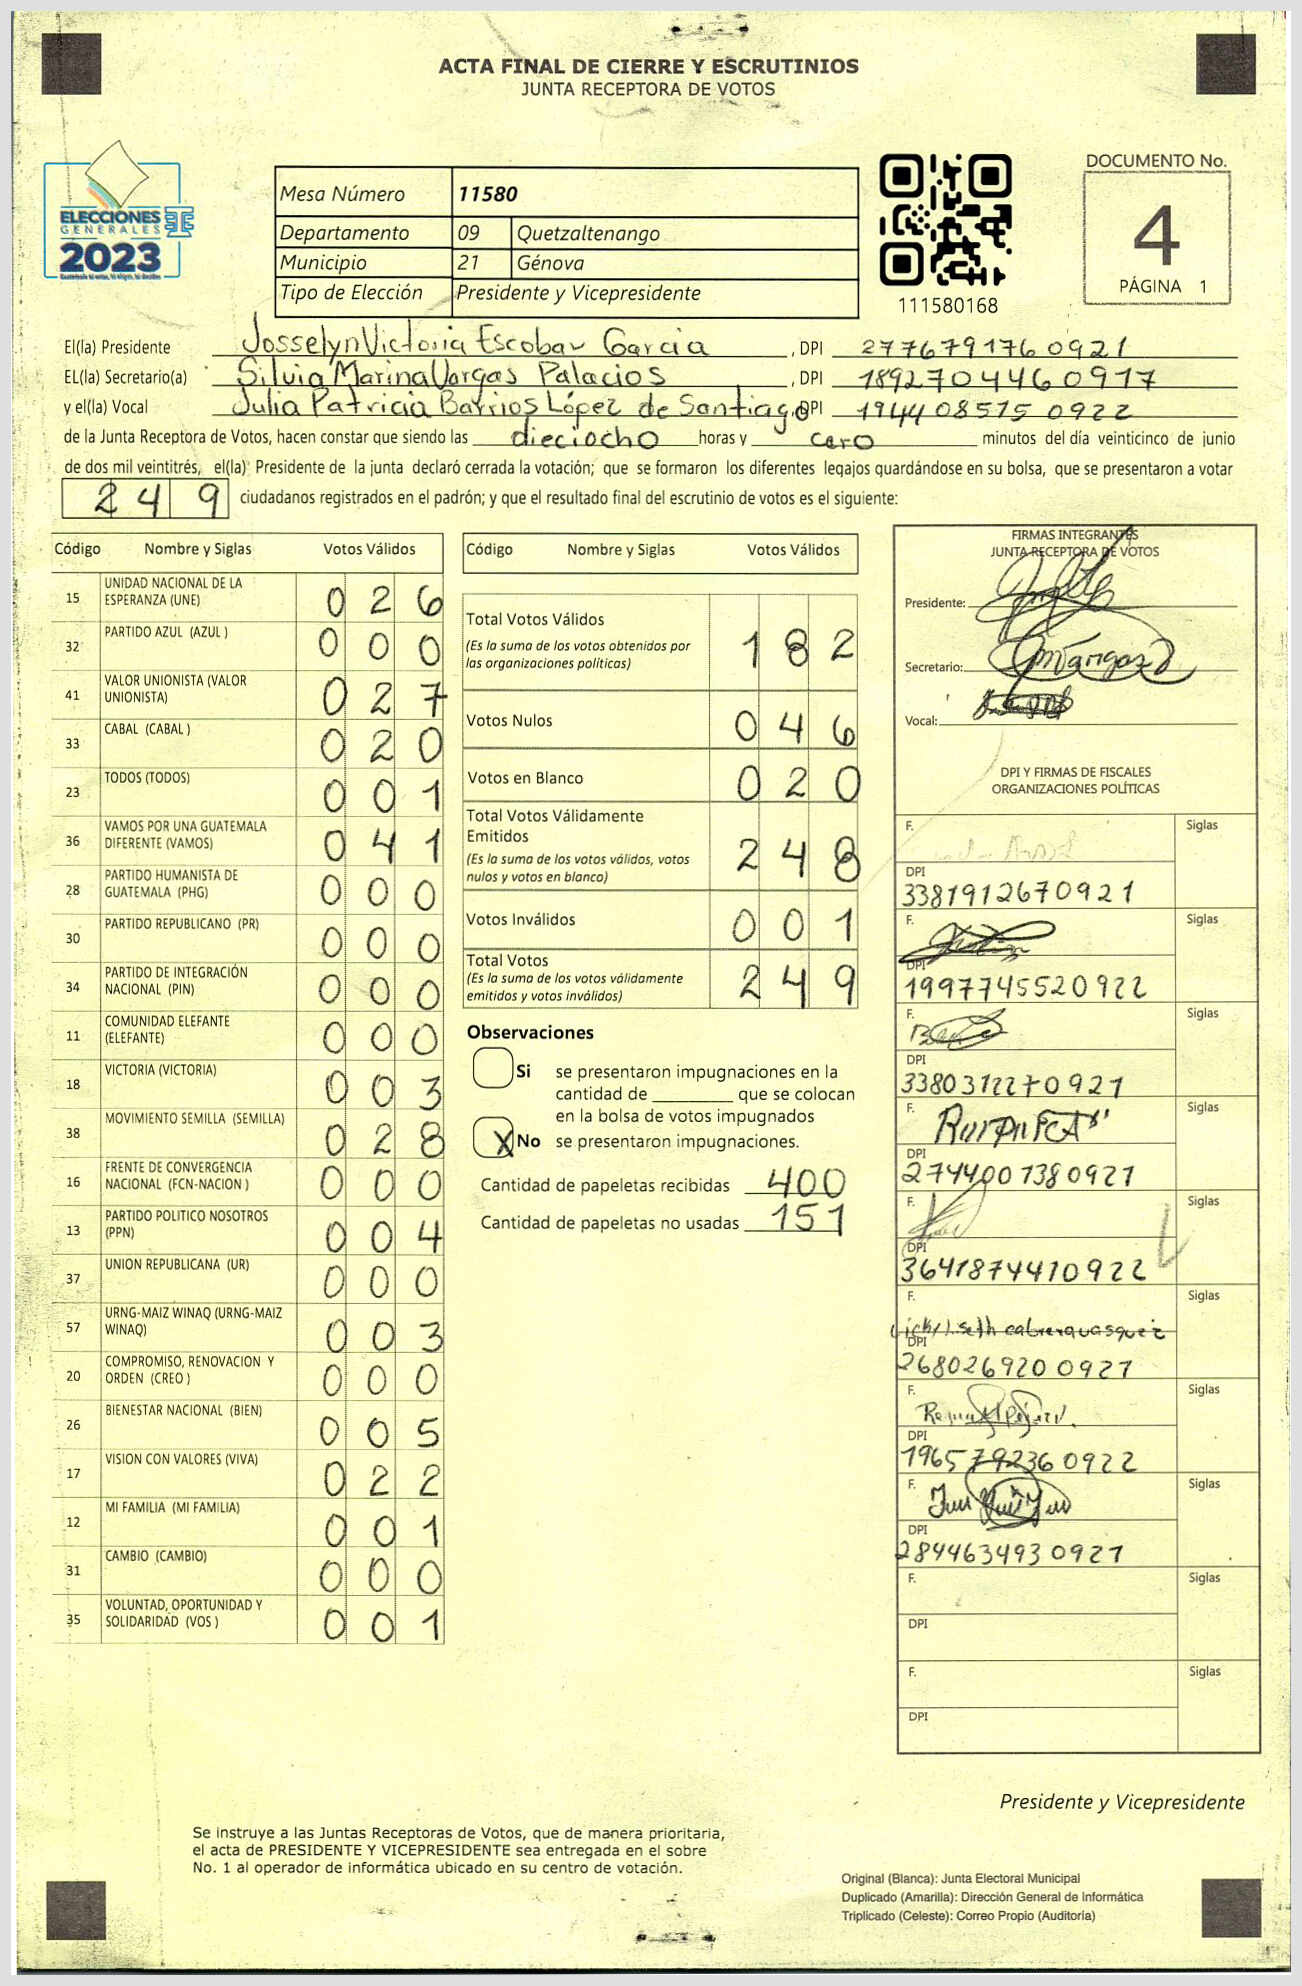 ACTA FINAL DE CIERRE Y ESCRUTINIOS
JUNTA RECEPTORA DE VOTOS
ELECCIONES
GENERALES
2023
Mesa Número 11580
Departamento 09 Quetzaltenango
Municipio 21 Génova
Tipo de Elección Presidente y Vicepresidente
111580168
DOCUMENTO No.
4
PÁGINA 1
El(la) Presidente Josselyn Victoria Escobar Garcia , DPI 277679176 0921
EL(la) Secretario(a) Silvia Marina Vargas Palacios , DPI 189270446 0917
y el(la) Vocal Julia Patricia Barrios López de Santiago , DPI 194408515 0922
de la Junta Receptora de Votos, hacen constar que siendo las dieciocho horas y cero minutos del día veinticinco de junio
de dos mil veintitrés, el(la) Presidente de la junta declaró cerrada la votación; que se formaron los diferentes legajos guardándose en su bolsa, que se presentaron a votar
249 ciudadanos registrados en el padrón; y que el resultado final del escrutinio de votos es el siguiente:
Código Nombre y Siglas Votos Válidos
15 UNIDAD NACIONAL DE LA ESPERANZA (UNE) 026
32 PARTIDO AZUL (AZUL ) 000
41 VALOR UNIONISTA (VALOR UNIONISTA) 027
33 CABAL (CABAL ) 020
23 TODOS (TODOS) 001
36 VAMOS POR UNA GUATEMALA DIFERENTE (VAMOS) 041
28 PARTIDO HUMANISTA DE GUATEMALA (PHG) 000
30 PARTIDO REPUBLICANO (PR) 000
34 PARTIDO DE INTEGRACIÓN NACIONAL (PIN) 000
11 COMUNIDAD ELEFANTE (ELEFANTE) 000
18 VICTORIA (VICTORIA) 003
38 MOVIMIENTO SEMILLA (SEMILLA) 028
16 FRENTE DE CONVERGENCIA NACIONAL (FCN-NACION ) 000
13 PARTIDO POLITICO NOSOTROS (PPN) 004
37 UNION REPUBLICANA (UR) 000
57 URNG-MAIZ WINAQ (URNG-MAIZ WINAQ) 003
20 COMPROMISO, RENOVACION Y ORDEN (CREO ) 000
26 BIENESTAR NACIONAL (BIEN) 005
17 VISION CON VALORES (VIVA) 022
12 MI FAMILIA (MI FAMILIA) 001
31 CAMBIO (CAMBIO) 000
35 VOLUNTAD, OPORTUNIDAD Y SOLIDARIDAD (VOS ) 001
Código Nombre y Siglas Votos Válidos
Total Votos Válidos 182
(Es la suma de los votos obtenidos por
las organizaciones políticas)
Votos Nulos 046
Votos en Blanco 020
Total Votos Válidamente
Emitidos 248
(Es la suma de los votos válidos, votos
nulos y votos en blanco)
Votos Inválidos 001
Total Votos 249
(Es la suma de los votos válidamente
emitidos y votos inválidos)
Observaciones
Si se presentaron impugnaciones en la
cantidad de ________ que se colocan
en la bolsa de votos impugnados
X No se presentaron impugnaciones.
Cantidad de papeletas recibidas 400
Cantidad de papeletas no usadas 151
FIRMAS INTEGRANTES
JUNTA RECEPTORA DE VOTOS
Presidente:
Secretario:
Vocal:
DPI Y FIRMAS DE FISCALES
ORGANIZACIONES POLÍTICAS
F. Siglas
DPI
338191267 0921
F. Siglas
DPI
199774552 0922
F. Siglas
DPI
338031227 0921
F. Siglas
DPI
274400738 0921
F. Siglas
DPI
364187441 0922
F. Siglas
DPI
268026920 0921
F. Siglas
DPI
196579236 0922
F. Siglas
DPI
284463493 0921
F. Siglas
DPI
F. Siglas
DPI
Presidente y Vicepresidente
Se instruye a las Juntas Receptoras de Votos, que de manera prioritaria,
el acta de PRESIDENTE Y VICEPRESIDENTE sea entregada en el sobre
No. 1 al operador de informática ubicado en su centro de votación.
Original (Blanca): Junta Electoral Municipal
Duplicado (Amarilla): Dirección General de Informática
Triplicado (Celeste): Correo Propio (Auditoría)